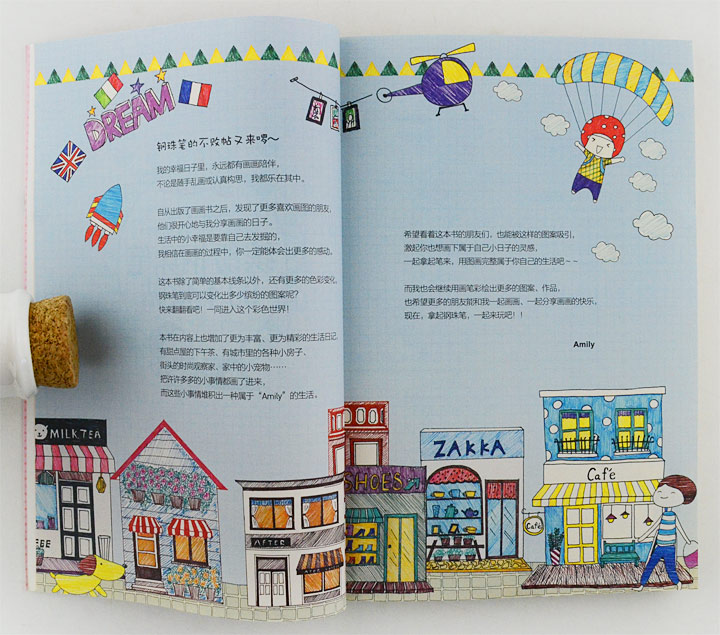 DREAM
钢珠笔的不败帖又来啰～
我的幸福日子里，永远都有画画陪伴，
不论是随手乱画或认真构思，我都乐在其中。
自从出版了画画书之后，发现了更多喜欢画图的朋友，
他们很开心地与我分享画画的日子。
生活中的小幸福是要靠自己去发掘的，
我相信在画画的过程中，你一定能体会出更多的感动。
这本书除了简单的基本线条以外，还有更多的色彩变化，
钢珠笔到底可以变化出多少缤纷的图案呢？
快来翻翻看吧！一同进入这个彩色世界！
本书在内容上也增加了更为丰富、更为精彩的生活日记，
有甜点屋的下午茶、有城市里的各种小房子、
街头的时尚观察家、家中的小宠物……
把许许多多的小事情都画了进来，
而这些小事情堆积出一种属于“Amily”的生活。
希望看着这本书的朋友们，也能被这样的图案吸引，
激起你也想画下属于自己小日子的灵感，
一起拿起笔来，用图画完整属于你自己的生活吧～～
而我也会继续用画笔彩绘出更多的图案、作品，
也希望更多的朋友能和我一起画画、一起分享画画的快乐。
现在，拿起钢珠笔，一起来玩吧！！
Amily
MILK TEA
AFTER
SHOES
ZAKKA
Café
Café